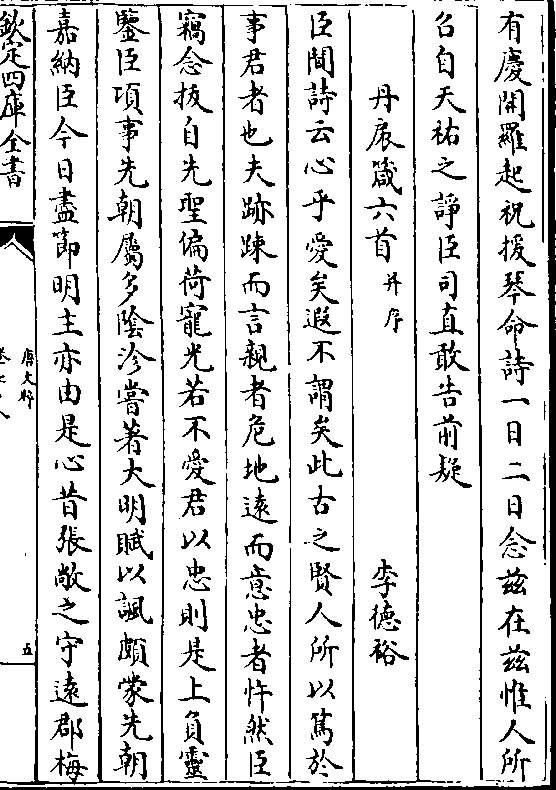 有慶開羅起祝援琴命詩一日二日念茲在茲惟人所
召自天祐之諍臣司直敢告前疑
丹扆箴六首 并序 李德裕
臣聞詩云心乎愛矣遐不謂矣此古之賢人所以篤於
事君者也夫跡踈而言親者危地遠而意忠者忤然臣
竊念拔自先聖偏荷寵光若不愛君以忠則是上負靈
鑒臣項事先朝屬多陰沴嘗著大明賦以諷頗蒙先朝
嘉納臣今日盡節明主亦由是心昔張敞之守遠郡梅
欽定四庫全書
唐文粹
五